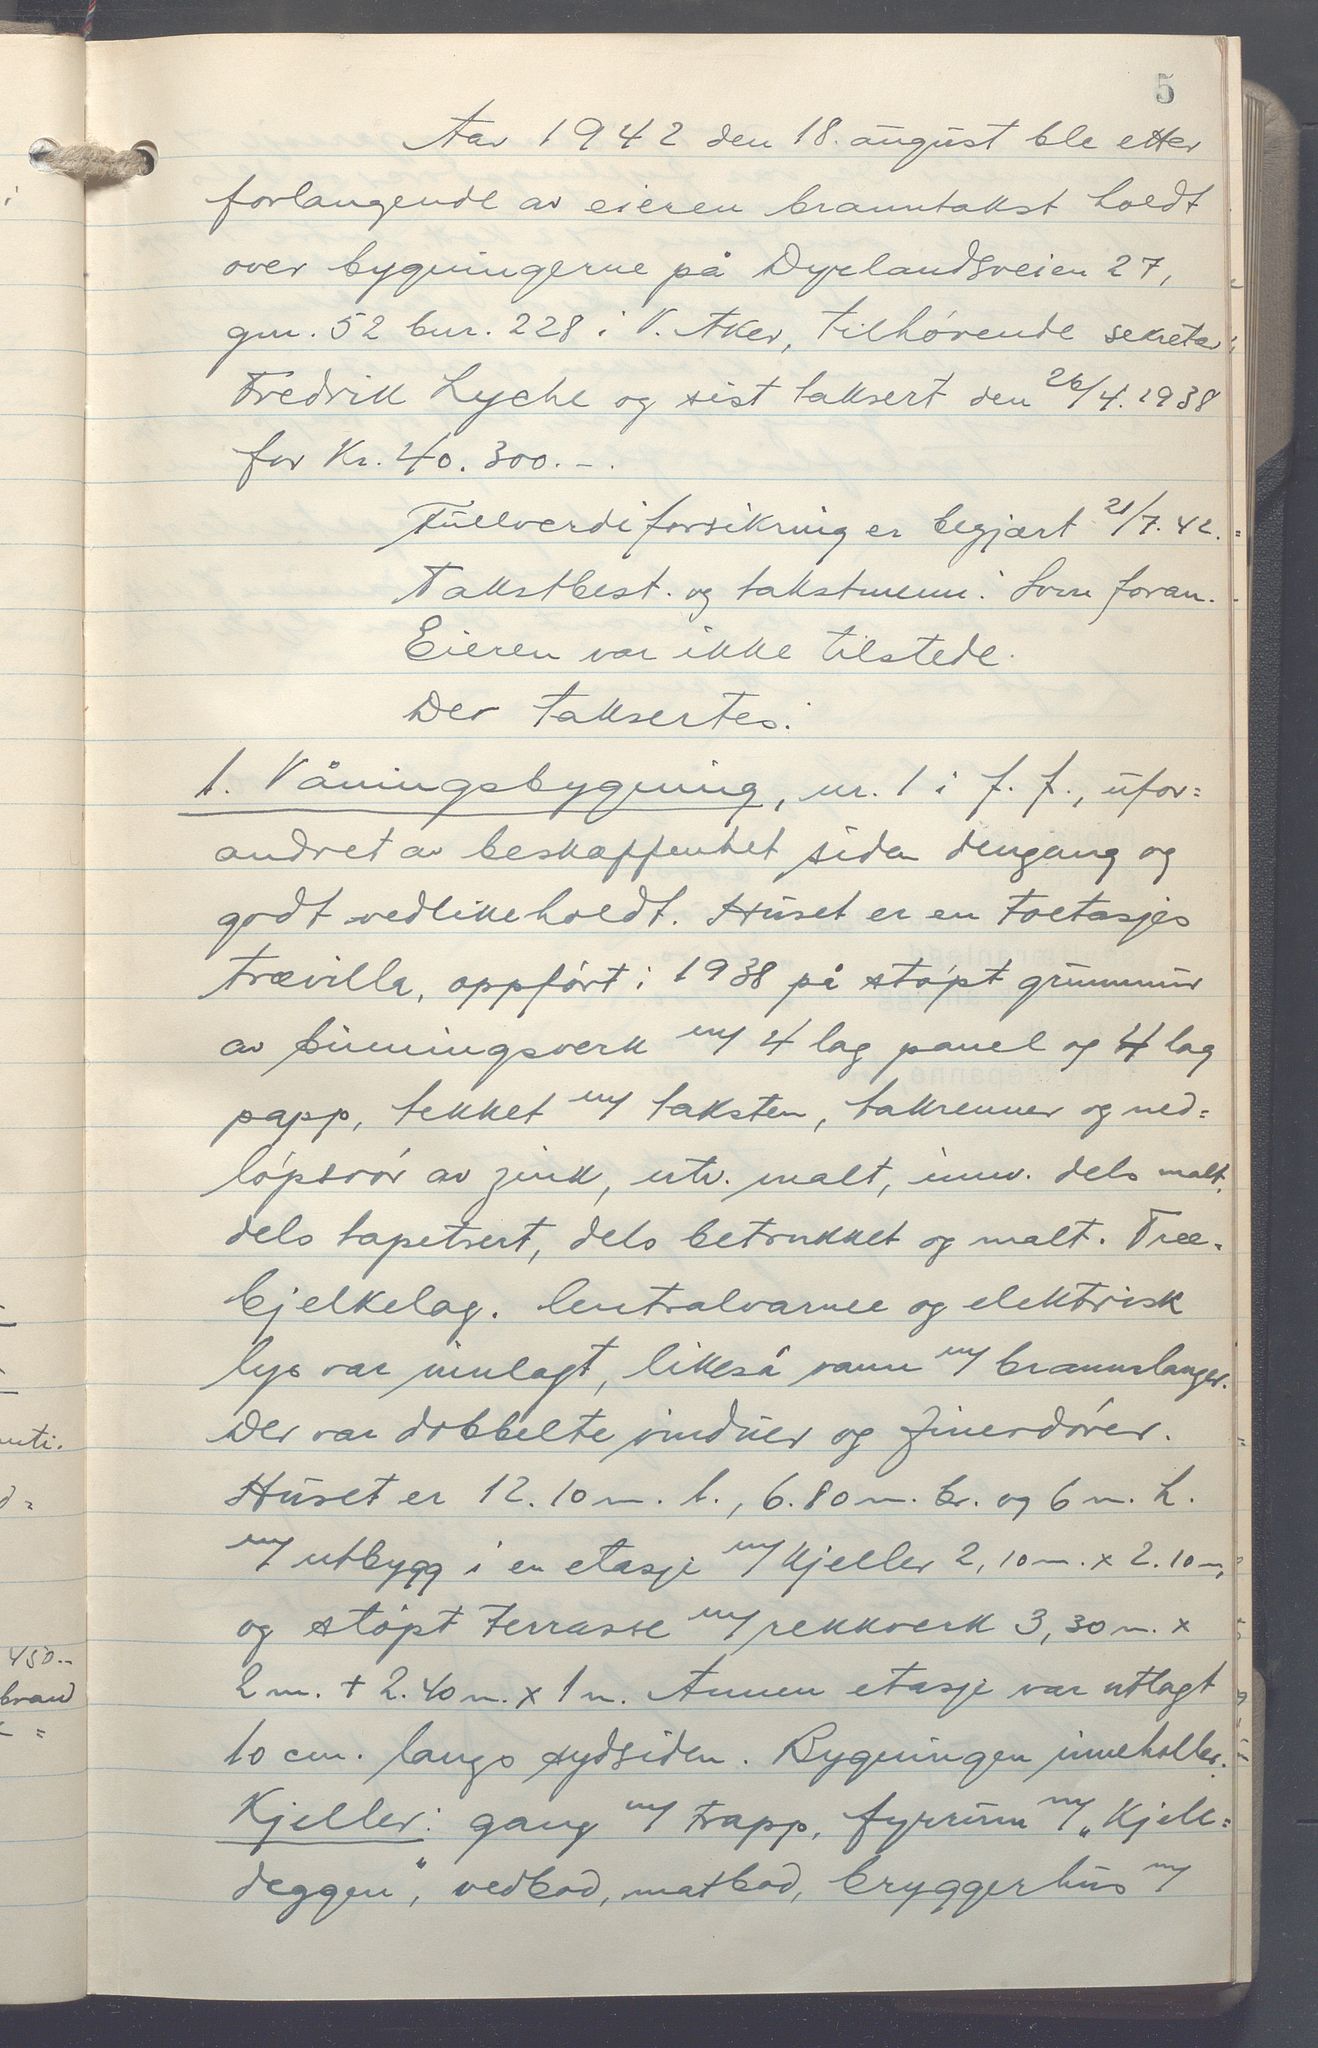 5
Aar 1942 den 18. august ble etter
forlangende av eieren branntakst holdt
over bygningerne på Dyrlandsveien 27,
gnr. 52 bnr. 228 i V. Aker, tilhørende sekretær
Fredrik Lyche og sist taksert den 26/4. 1938
for Kr. 40.300.-.
Fullverdiforsikring er begjært 21/7. 42.
Takstbest. og takstmenn: Som foran.
Eieren var ikke tilstede.
Der taksertes:
1. Våningsbygning, nr. 1 i f. f., ufor=
andret av beskaffenhet siden dengang og
godt vedlikeholdt. Huset er en toetasjes
trævilla, oppført i 1938 på støpt grunnmur
av binningsverk m/ 4 lag panel og 4 lag
papp, tekket m/ taksten, takrenner og ned=
løpsrør av zink, utv. malt, innv. dels malt,
dels tapetsert, dels betrukket og malt. Træ-
bjelkelag. Centralvarme og elektrisk
lys var innlagt, likeså vann m/ brannslanger.
Der var dobbelte vinduer og finerdører.
Huset er 12.10 m. l., 6.80 m. br. og 6 m. h.
m/ utbygg i en etasje m/ kjeller 2,10 m. x 2.10 m,
og støpt terrasse m/ rekkverk 3,30 m. x
2 m. + 2.40 m. x 1 m. Annen etasje var utlagt
10 cm. langs sydsiden. Bygningen inneholder:
Kjeller: gang m/ trapp, fyrrum m/ „Kjell=
deggen", vedbod, matbod, bryggerhus m/
450.-